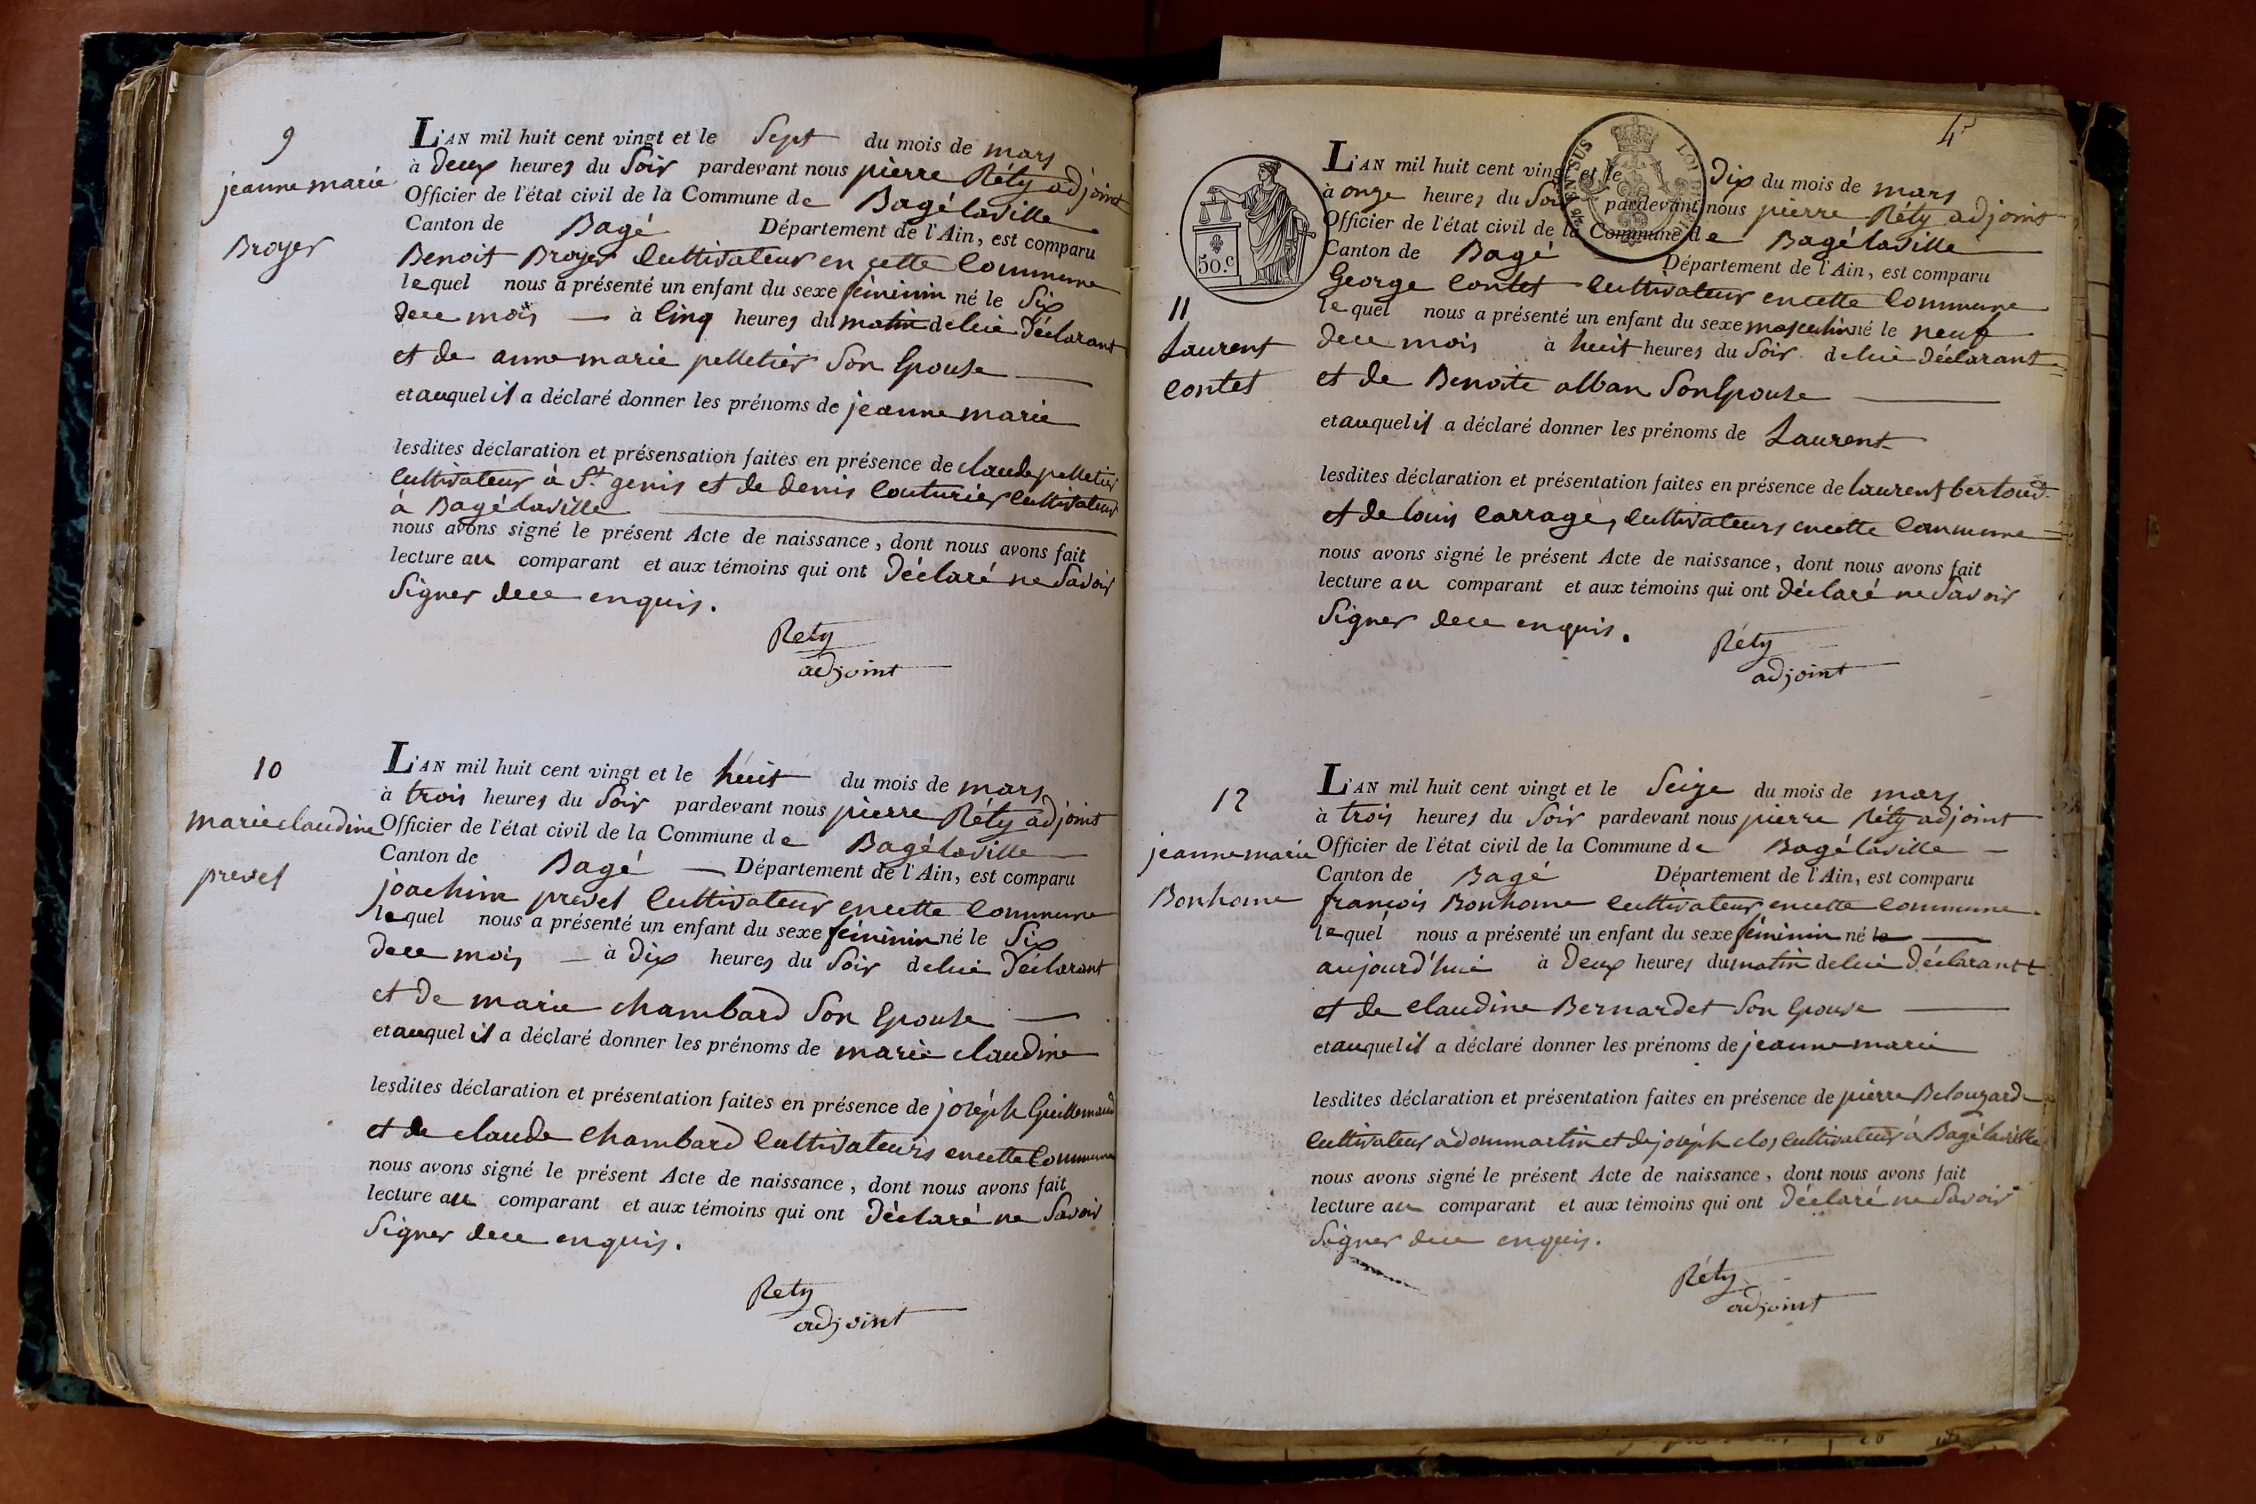 9
jeanne marie
Broyer
L'AN mil huit cent vingt et le Sept du mois de mars
à deux heures du Soir pardevant nous pierre Réty adjoint
Officier de l'état civil de la Commune de Bagé laville
Canton de Bagé Département de l'Ain, est comparu
Benoit Broyer Cultivateur en cette Commune
lequel nous a présenté un enfant du sexe féminin né le Six
de ce mois à Cinq heures du matin de lui déclarant
et de anne marie pelletier Son Epouse
et auquel il a déclaré donner les prénoms de jeanne marie
lesdites déclaration et présensation faites en présence de claude pelletier
Cultivateur à St genis et de denis Couturier Cultivateur
à Bagé laville
nous avons signé le présent Acte de naissance, dont nous avons fait
lecture au comparant et aux témoins qui ont déclaré ne Savoir
Signer de ce enquis.
Rety
adjoint
10
marie claudine
prevel
L'AN mil huit cent vingt et le huit du mois de mars
à trois heures du Soir pardevant nous pierre Réty adjoint
Officier de l'état civil de la Commune de Bagé laville
Canton de Bagé Département de l'Ain, est comparu
joachim prevel Cultivateur en cette Commune
lequel nous a présenté un enfant du sexe féminin né le Six
de ce mois à dix heures du Soir de lui déclarant
et de marie chambard Son Epouse
et auquel il a déclaré donner les prénoms de marie claudine
lesdites déclaration et présentation faites en présence de joséph Guillemaud
et de claude Chambard Cultivateurs en cette Commune
nous avons signé le présent Acte de naissance, dont nous avons fait
lecture au comparant et aux témoins qui ont déclaré ne Savoir
Signer de ce enquis.
Rety
adjoint
50.c
11
Laurent
Contet
L'AN mil huit cent vingt et le dix du mois de mars
à onze heures du Soir pardevant nous pierre Réty adjoint
Officier de l'état civil de la Commune de Bagé laville
Canton de Bagé Département de l'Ain, est comparu
George Contet Cultivateur en cette Commune
lequel nous a présenté un enfant du sexe masculin né le neuf
de ce mois à huit heures du Soir de lui déclarant
et de Benoite alban Son Epouse
et auquel il a déclaré donner les prénoms de Laurent
lesdites déclaration et présentation faites en présence de laurent
et de louis Carrage, Cultivateurs en cette Commune
nous avons signé le présent Acte de naissance, dont nous avons fait
lecture au comparant et aux témoins qui ont déclaré ne Savoir
Signer de ce enquis.
Réty
adjoint
12
jeanne marie
Bonhome
L'AN mil huit cent vingt et le Seize du mois de mars
à trois heures du Soir pardevant nous pierre Réty adjoint
Officier de l'état civil de la Commune de Bagé laville
Canton de Bagé Département de l'Ain, est comparu
françois Bonhome Cultivateur en cette Commune
lequel nous a présenté un enfant du sexe féminin né le
aujourd'hui à deux heures du matin de lui déclarant
et de Claudine Bernardet Son Epouse
et auquel il a déclaré donner les prénoms de jeanne marie
lesdites déclaration et présentation faites en présence de pierre Belouzard
Cultivateur à dommartin et de joséph clos Cultivateur à Bagé laville
nous avons signé le présent Acte de naissance, dont nous avons fait
lecture au comparant et aux témoins qui ont déclaré ne Savoir
Signer de ce enquis.
Réty
adjoint